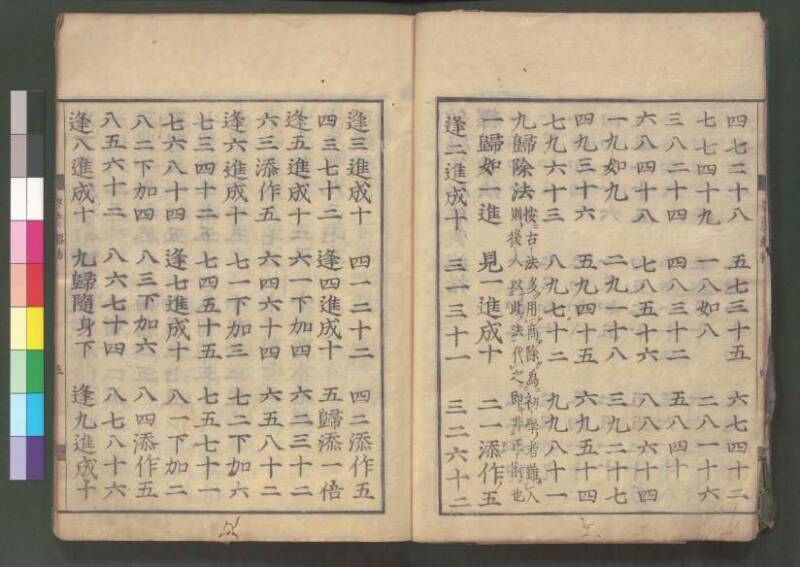 四七二十八 五七三十五 六七四十二
七七四十九 一八如八 二八一十六
三八二十四 四八三十二 五八四十
六八四十八 七八五十六 八八六十四
一九如九 二九一十八 三九二十七
四九三十六 五九四十五 六九五十四
七九六十三 八九七十二 九九八十一
九歸除法 按古法多用商除爲初學者難入
則後人以此法代之即非正術也
一歸如一進 見一進成十 二一添作五
逢二進成十 三一三十一 三二六十二
逢三進成十 四一二十二 四二添作五
四三七十二 逢四進成十 五歸添一倍
逢五進成十 六一下加四 六二三十二
六三添作五 六四六十四 六五八十二
逢六進成十 七一下加三 七二下加六
七三四十二 七四五十五 七五七十一
七六八十四 逢七進成十 八一下加二
八二下加四 八三下加六 八四添作五
八五六十二 八六七十四 八七八十六
逢八進成十 九歸隨身下 逢九進成十